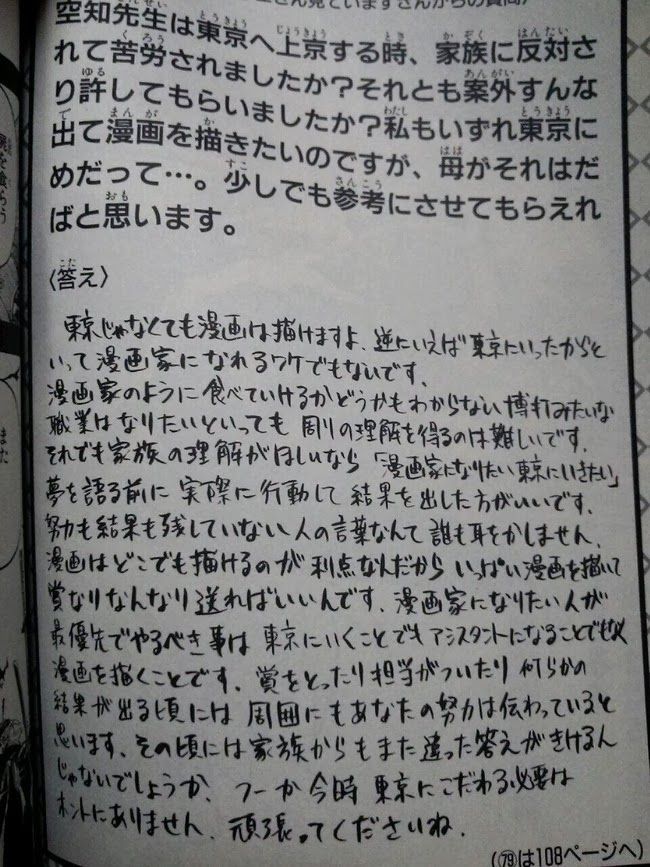 さんからの質問〉
空知先生は東京へ上京する時、家族に反対さ
れて苦労されましたか？それとも案外すんな
り許してもらいましたか？私もいずれ東京に
出て漫画を描きたいのですが、母がそれはだ
めだって…。少しでも参考にさせてもらえれ
ばと思います。
〈答え〉
東京じゃなくても漫画は描けますよ、逆にいえば東京にいったからと
いって漫画家になれるワケでもないです。
漫画家のように食べていけるかどうかもわからない博打みたいな
職業はなりたいといっても周りの理解を得るのは難しいです。
それでも家族の理解がほしいなら「漫画家になりたい東京にいきたい」
夢を語る前に実際に行動して結果を出した方がいいです。
努力も結果も残していない人の言葉なんて誰も耳をかしません。
漫画はどこでも描けるのが利点なんだからいっぱい漫画を描いて
賞なりなんなり送ればいいんです。漫画家になりたい人が
最優先でやるべき事は東京にいくことでもアシスタントになることでもなく
漫画を描くことです。賞をとったり担当がついたり何らかの
結果が出る頃には周囲にもあなたの努力は伝わっていると
思います。その頃には家族からもまた違った答えがきけるん
じゃないでしょうか、つーか今時東京にこだわる必要は
ホントにありません、頑張ってくださいね。
(79は108ページへ)